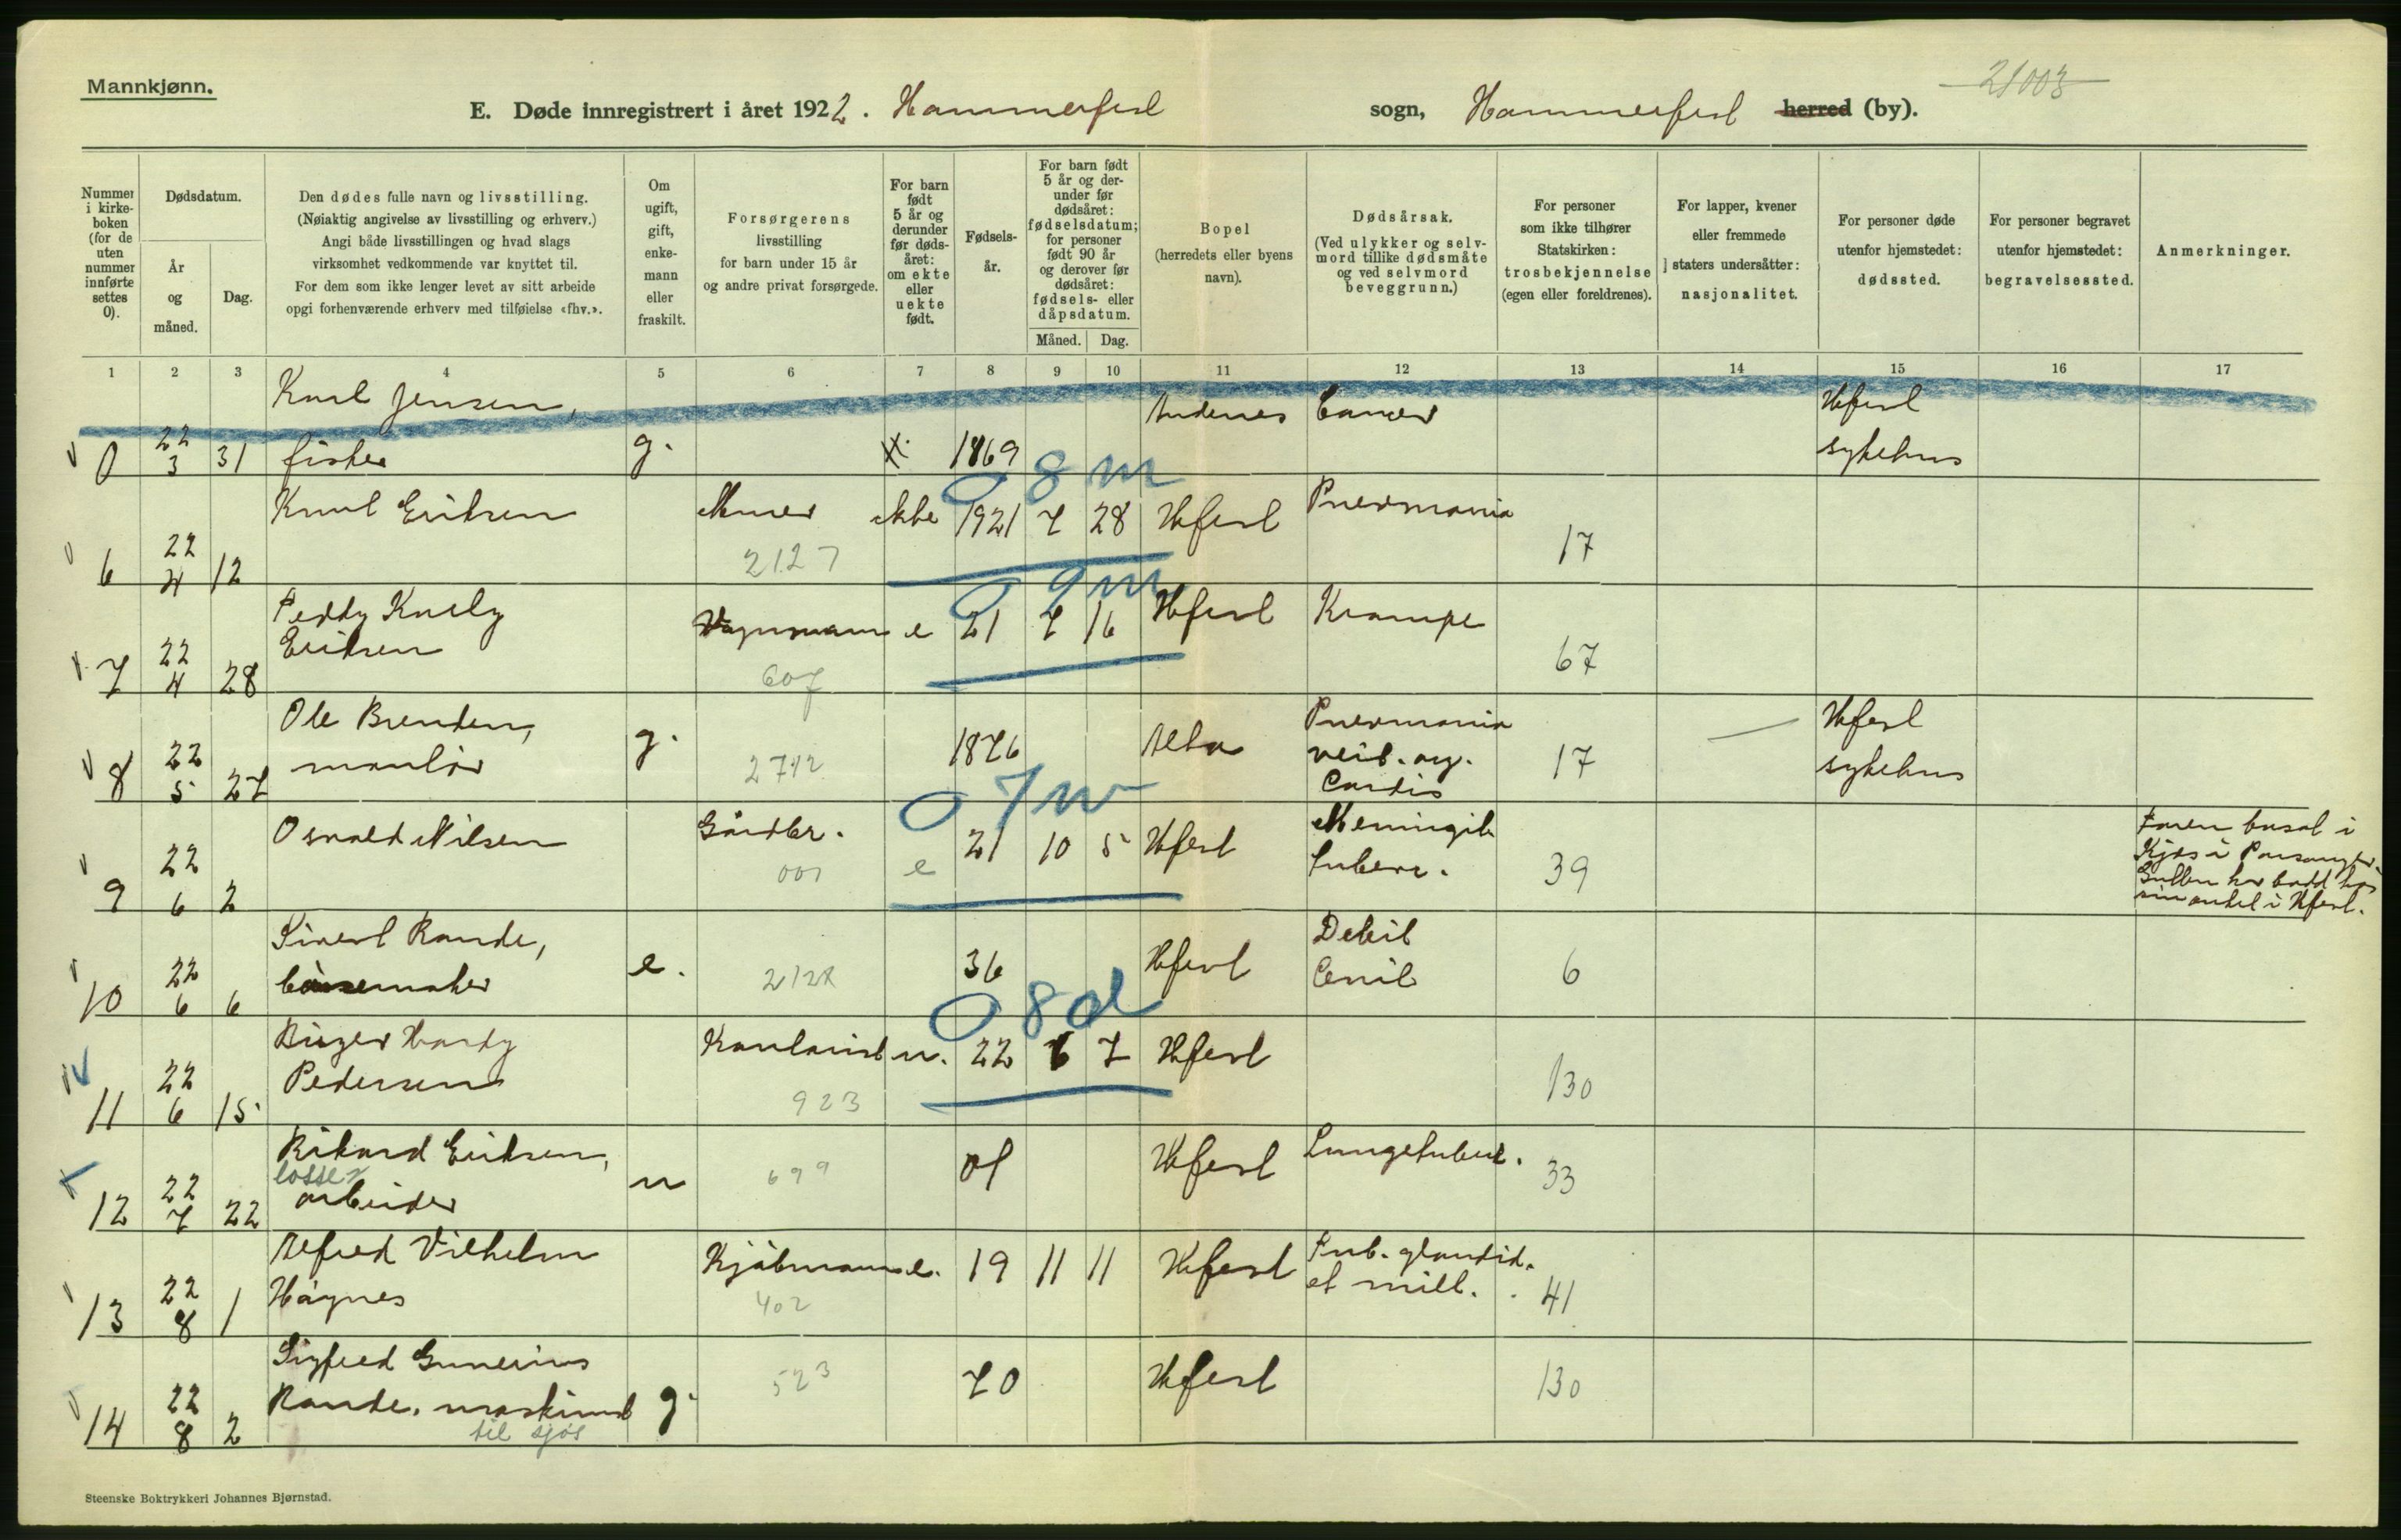 Mannkjønn.
21003
E. Døde innregistrert i året 1922. Hammerfest sogn, Hammerfest herred (by).
Nummer i kirke-boken (for de uten nummer innførte settes 0).
Dødsdatum.
År og måned.
Dag.
Den dødes fulle navn og livsstilling.
(Nøiaktig angivelse av livsstilling og erhverv.)
Angi både livsstillingen og hvad slags
virksomhet vedkommende var knyttet til.
For dem som ikke lenger levet av sitt arbeide
opgi forhenværende erhverv med tilføielse «fhv.».
Om ugift, gift, enke-mann eller fraskilt.
Forsørgerens
livsstilling
for barn under 15 år
og andre privat forsørgede.
For barn født 5 år og derunder før døds-året: om ekte eller uekte født.
Fødsels-år.
For barn født 5 år og der-under før dødsåret: fødselsdatum; for personer født 90 år og derover før dødsåret: fødsels- eller dåpsdatum.
Måned. Dag.
Bopel
(herredets eller byens navn).
Dødsårsak.
(Ved ulykker og selv-mord tillike dødsmåte og ved selvmord beveggrunn.)
For personer som ikke tilhører Statskirken: trosbekjennelse (egen eller foreldrenes).
For lapper, kvener eller fremmede staters undersåtter: nasjonalitet.
For personer døde utenfor hjemstedet: dødssted.
For personer begravet utenfor hjemstedet: begravelsessted.
Anmerkninger.
1 2 3 4 5 6 7 8 9 10 11 12 13 14 15 16 17
Karl Jensen, Andenes Cancer Hfest
0 22 3 31 fisker g. 1869 sykehus
0 8 m
Knut Eriksen Murer ekte 1921 7 28 Hfest Pneumonia
6 22 4 12 2127 17
0 9 m
Peddy Karly Vognmann e 21 7 16 Hfest Krampe
Eriksen
7 22 4 28 607 67
Ole Brenden, g. 1876 Alta Pneumonia Hfest
murer
8 22 5 27 2712 17 sykehus
Cordis
0 7 m
Osvald Nilsen Gårdbr. e 21 10 5 Hfest Meningit
tuberc.
9 22 6 2 001 39
Faren bosat i
Kjæs i Porsanger.
Gutten har bodd hos
sin onkel i Hfest.
Sivert Rande, e. 36 Hfest Debil
børsemaker Cenil
10 22 6 6 2128 6
0 8 d
Birger Hardy Kontorist u. 22 6 7 Hfest
Pedersen
11 22 6 15 923 130
Rikard Eriksen, u 01 Hfest Lungetuberk.
losse
arbeider
12 22 7 22 699 33
Alfred Vilhelm Kjøbmann e. 19 11 11 Hfest Tub. glandid.
Høynes et mill.
13 22 8 1 402 41
Sigfred Gunerius 70 Hfest
Rande, maskinist g.
til sjøs
14 22 8 2 523 130
Steenske Boktrykkeri Johannes Bjørnstad.